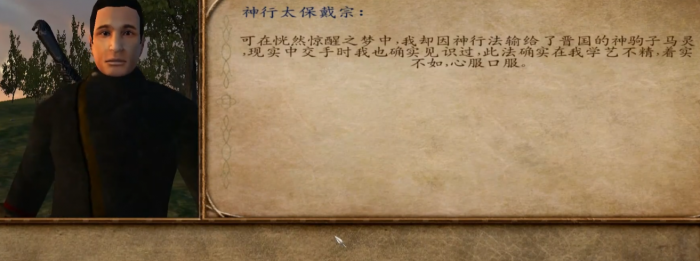 神行太保戴宗：
可在恍然惊醒之梦中，我却因神行法输给了晋国的神驹子马灵
，现实中交手时我也确实见识过，此法确实在我学艺不精，着实
不如，心服口服。